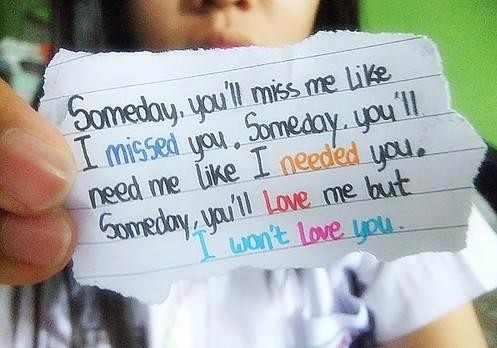 Someday, you'll miss me like
I missed you. Someday, you'll
need me like I needed you.
Someday, you'll Love me but
I won't Love you.